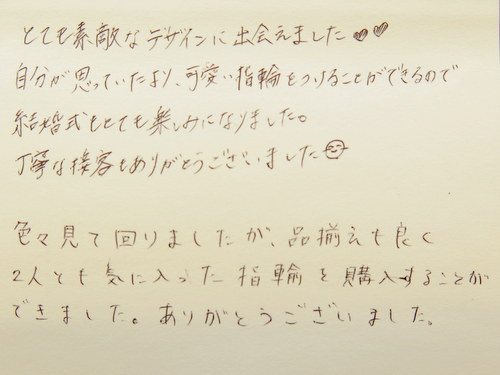 とても素敵なデザインに出会えました♥♥
自分が思っていたより、可愛い指輪をつけることができるので
結婚式もとても楽しみになりました。
丁寧な接客もありがとうございました☺
色々見て回りましたが、品揃えも良く
2人とも気に入った指輪を購入することが
できました。ありがとうございました。